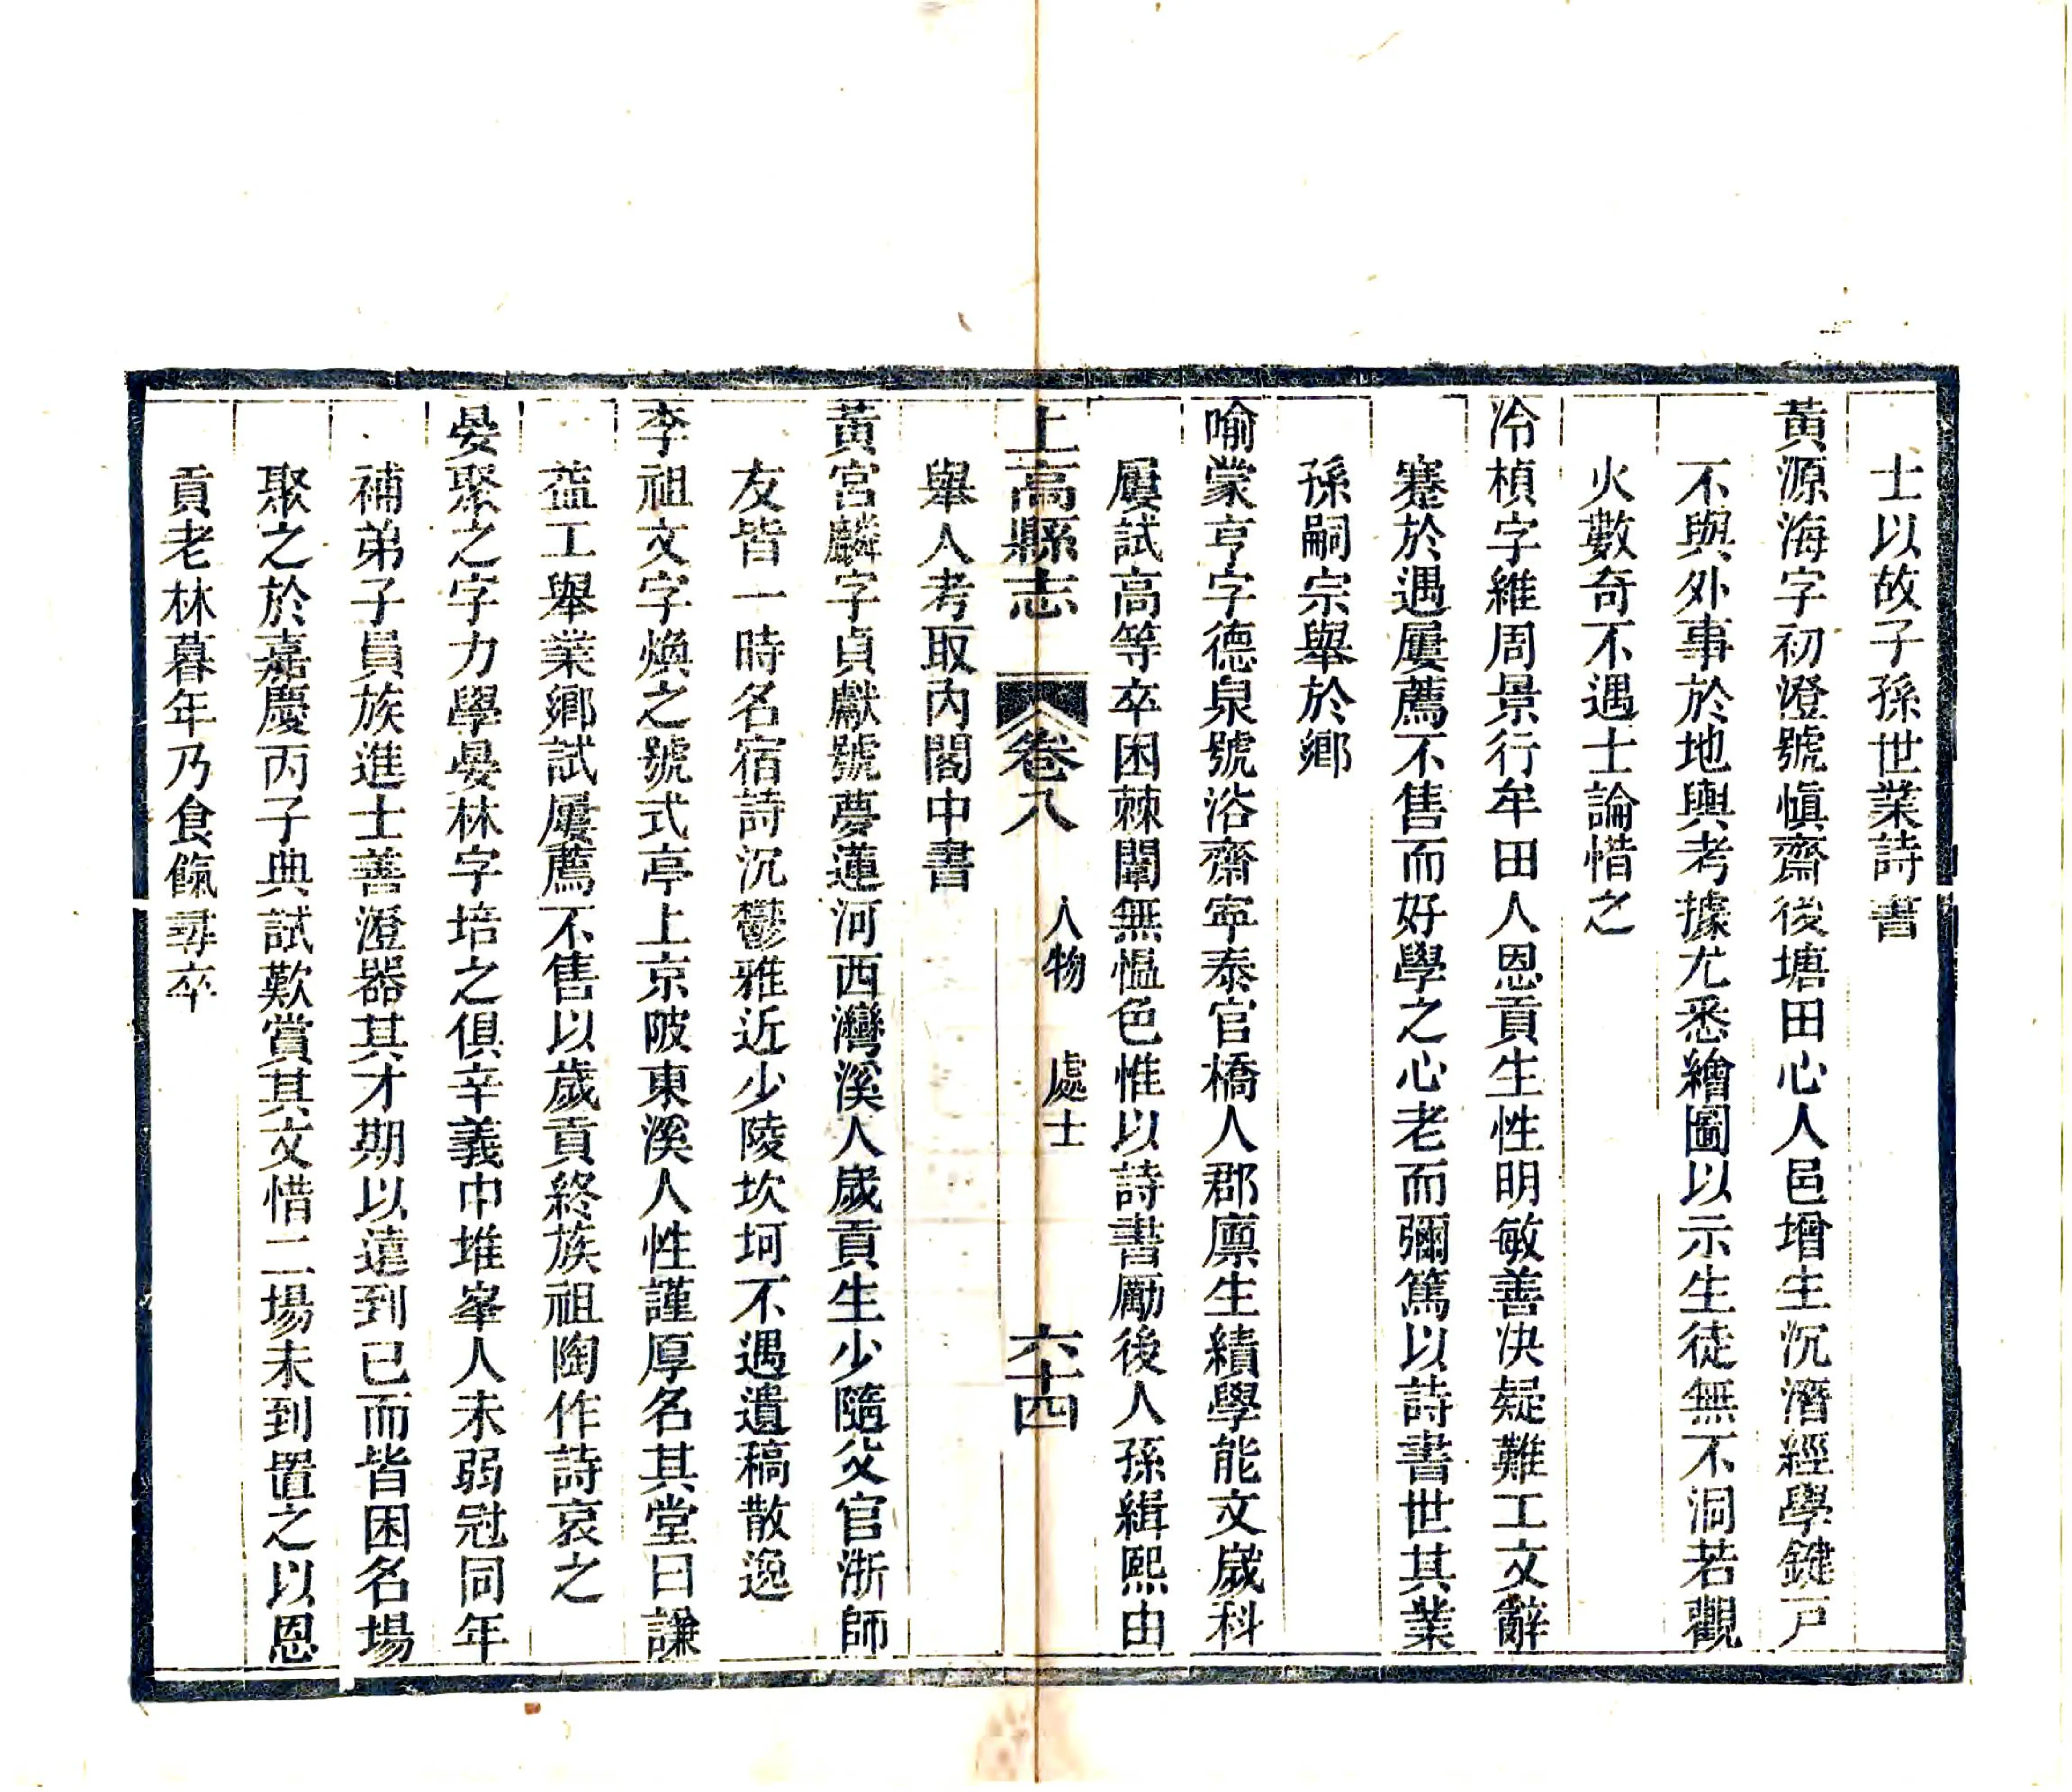 士以故子孫世業詩書
黃源海字初澄號愼齋後塘田心人邑增生沉潛經學鍵戸
不與外事於地輿考據尤悉繪圖以示生徒無不洞若觀
火數奇不遇士論惜之
冷楨字維周景行牟田人恩貢生性明敏善決疑難工文辭
蹇於遇屢薦不售而好學之心老而彌篤以詩書世其業
孫嗣宗舉於鄉
喻蒙亨字德泉號浴齋寧泰官橋人郡廩生績學能文歲科
屢試高等卒困棘闈無慍色惟以詩書勵後人孫緝熙由
上高縣志 卷八 人物 處士 六十四
舉人考取內閣中書
黃宮麟字貞獻號夢蓮河西灣溪人歲貢生少隨父官浙師
友皆一時名宿詩沉鬱雅近少陵坎坷不遇遺稿散逸
李祖文字煥之號式亭上京陂東溪人性謹厚名其堂曰謙
益工舉業鄉試屢薦不售以歲貢終族祖陶作詩哀之
晏聚之字力學晏林字培之俱辛義中堆峯人未弱冠同年
補弟子員族進士善澄器其才期以遠到已而皆困名場
聚之於嘉慶丙子典試歎賞其文惜二場未到置之以恩
貢老林暮年乃食餼尋卒